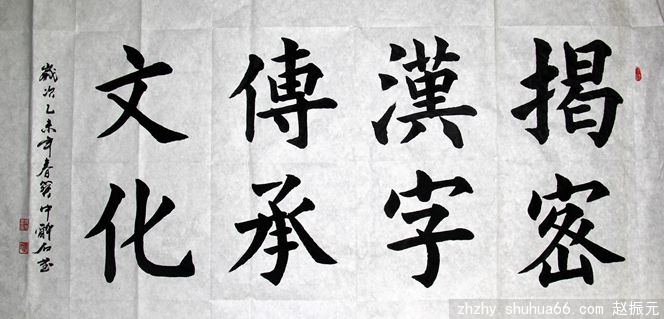 揭密
漢字
傳承
文化
歲次乙未年春賀中
zhzhy.shuhua66.com 赵振元